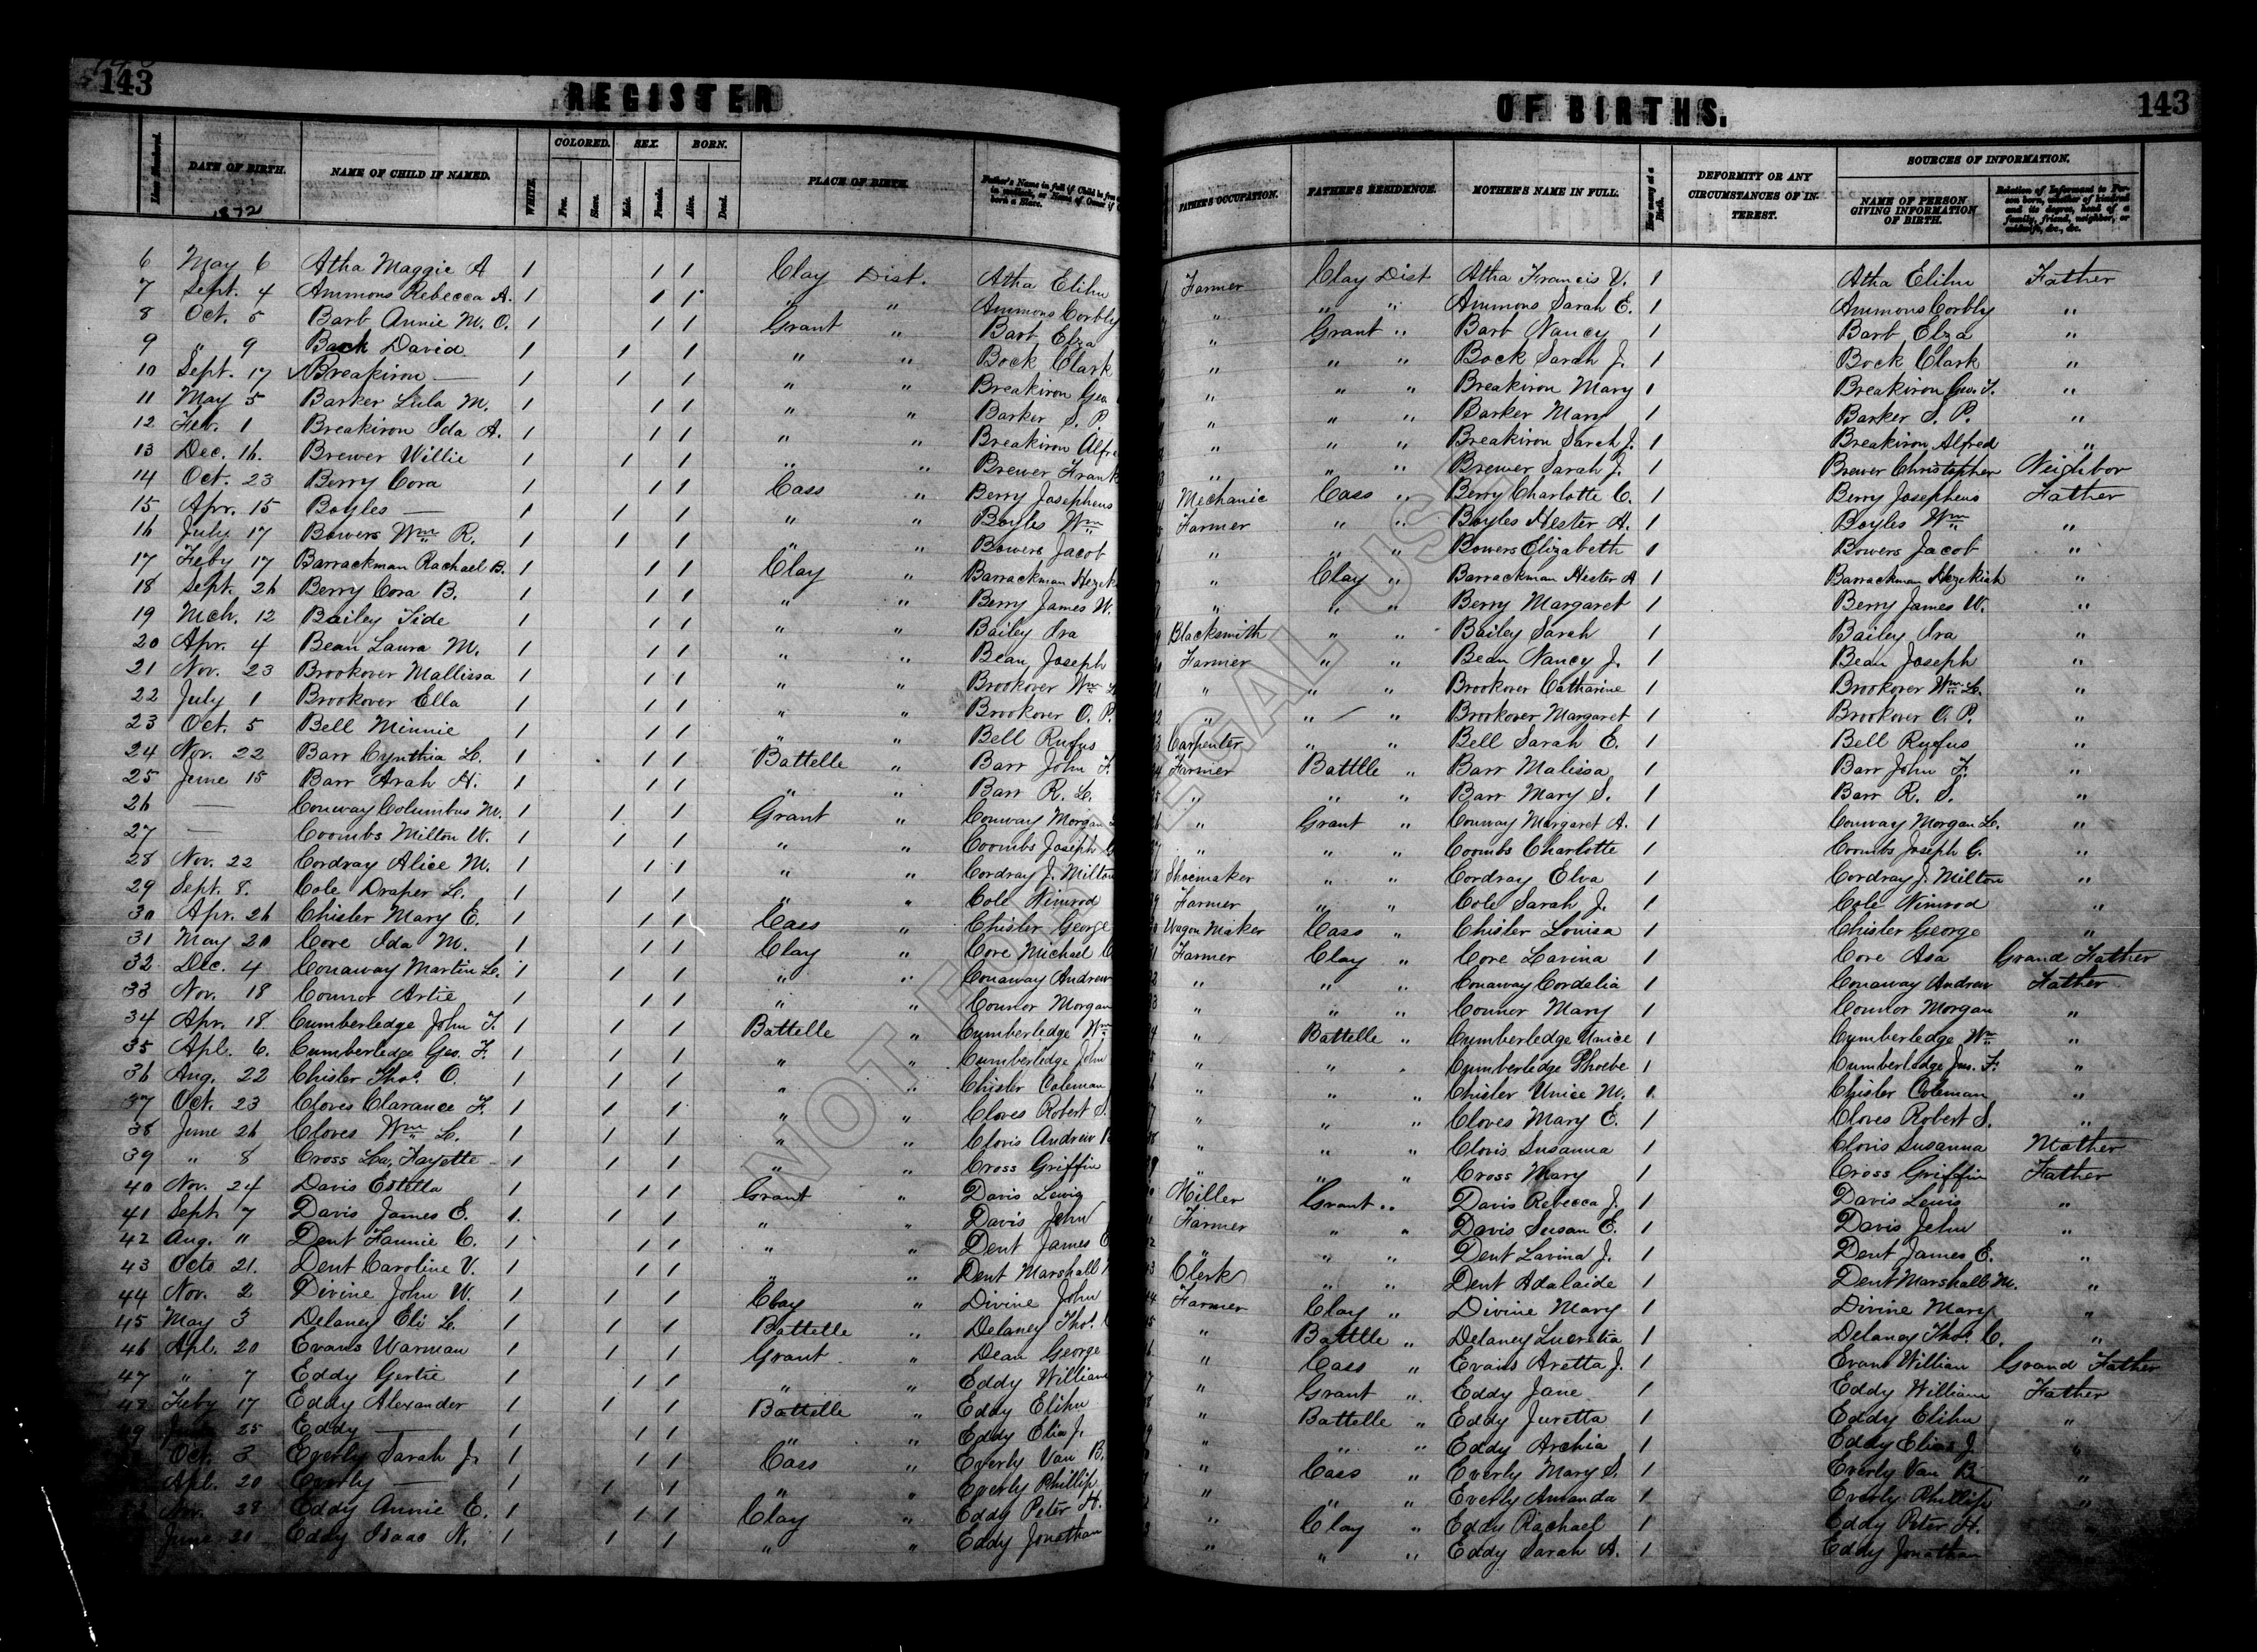 143 REGISTER OF BIRTHS. 143
Line Numbered. DATE OF BIRTH. NAME OF CHILD IF NAMED. WHITE. COLORED. Free. Slave. SEX. Male. Female. BORN. Alive. Dead. PLACE OF BIRTH. Father's Name in full if Child be free in wedlock, or Name of Owner if born a Slave. FATHER'S OCCUPATION. FATHER'S RESIDENCE. MOTHER'S NAME IN FULL. How many at a Birth. DEFORMITY OR ANY CIRCUMSTANCES OF INTEREST. SOURCES OF INFORMATION. NAME OF PERSON GIVING INFORMATION OF BIRTH. Relation of Informant to Person born, whether of kindred and its degree, head of a family, friend, neighbor, or midwife, &c., &c.
1872
6 May 6 Atha Maggie A 1 1 1 Clay Dist. Atha Elihu Farmer Clay Dist Atha Francis V. 1 Atha Elihu Father
7 Sept. 4 Ammons Rebecca A. 1 1 1 " " Ammons Corbly " " " Ammons Sarah E. 1 Ammons Corbly "
8 Oct. 5 Barb Annie M. O. 1 1 1 Grant " Barb Elza " Grant " Barb Nancy 1 Barb Elza "
9 " 9 Bock David 1 1 1 " " Bock Clark " " " Bock Sarah J. 1 Bock Clark "
10 Sept. 17 Breakiron — 1 1 1 " " Breakiron Geo " " " Breakiron Mary 1 Breakiron Geo. T. "
11 May 5 Barker Lula M. 1 1 1 " " Barker S. P. " " " Barker Mary 1 Barker S. P. "
12 Feb. 1 Breakiron Ida A. 1 1 1 " " Breakiron Alfre " " " Breakiron Sarah J. 1 Breakiron Alfred "
13 Dec. 16. Brewer Willie 1 1 1 " " Brewer Frank " " " Brewer Sarah J. 1 Brewer Christopher Neighbor
14 Oct. 23 Berry Cora 1 1 1 Cass " Berry Josephens Mechanic Cass " Berry Charlotte C. 1 Berry Josephens Father
15 Apr. 15 Boyles — 1 1 1 " " Boyles Wm Farmer " " Boyles Hester A. 1 Boyles Wm "
16 July 17 Bowers Wm R. 1 1 1 " " Bowers Jacob " " " Bowers Elizabeth 1 Bowers Jacob "
17 Feby 17 Barrackman Rachael B. 1 1 1 Clay " Barrackman Hezek " Clay " Barrackman Hester A 1 Barrackman Hezekiah "
18 Sept. 26 Berry Cora B. 1 1 1 " " Berry James W. " " " Berry Margaret 1 Berry James W. "
19 Mch. 12 Bailey Tide 1 1 1 " " Bailey Ira Blacksmith " " Bailey Sarah 1 Bailey Ira "
20 Apr. 4 Bean Laura M. 1 1 1 " " Bean Joseph Farmer " " Bean Nancy J. 1 Bean Joseph "
21 Nov. 23 Brookover Mallissa 1 1 1 " " Brookover Wm L " " " Brookover Catharine 1 Brookover Wm L. "
22 July 1 Brookover Ella 1 1 1 " " Brookover O. P. " " " Brookover Margaret 1 Brookover O. P. "
23 Oct. 5 Bell Minnie 1 1 1 " " Bell Rufus Carpenter " " Bell Sarah E. 1 Bell Rufus "
24 Nov. 22 Barr Cynthia L. 1 1 1 Battelle " Barr John F. Farmer Battlle " Barr Malissa 1 Barr John F. "
25 June 15 Barr Arah H. 1 1 1 " " Barr R. L. " " " Barr Mary S. 1 Barr R. S. "
26 — Conway Columbus M. 1 1 1 Grant " Conway Morgan L " Grant " Conway Margaret A. 1 Conway Morgan L. "
27 — Coombs Milton W. 1 1 1 " " Coombs Joseph G " " " Coombs Charlotte 1 Coombs Joseph G. "
28 Nov. 22 Cordray Alice M. 1 1 1 " " Cordray J. Milton Shoemaker " " Cordray Elva 1 Cordray J. Milton "
29 Sept. 8. Cole Draper L. 1 1 1 " " Cole Nimrod Farmer " " Cole Sarah J. 1 Cole Nimrod "
30 Apr. 26 Chisler Mary E. 1 1 1 Cass " Chisler George Wagon Maker Cass " Chisler Louisa 1 Chisler George "
31 May 20 Core Ida M. 1 1 1 Clay " Core Michael Farmer Clay " Core Lavina 1 Core Asa Grand Father
32 Dec. 4 Conaway Martin L. 1 1 1 " " Conaway Andrew " " " Conaway Cordelia 1 Conaway Andrew Father
33 Nov. 18 Connor Artie 1 1 1 " " Connor Morgan " " " Connor Mary 1 Connor Morgan "
34 Apr. 18. Cumberledge John T. 1 1 1 Battelle " Cumberledge Wm " Battelle " Cumberledge Unice 1 Cumberledge Wm "
35 Apl. 6. Cumberledge Geo. F. 1 1 1 " " Cumberledge John " " " Cumberledge Phoebe 1 Cumberledge Jno. F. "
36 Aug. 22 Chisler Thos. O. 1 1 1 " " Chisler Coleman " " " Chisler Unice M. 1 Chisler Coleman "
37 Oct. 23 Cloves Clarance F. 1 1 1 " " Cloves Robert S. " " " Cloves Mary E. 1 Cloves Robert S. "
38 June 26 Cloves Wm L. 1 1 1 " " Clovis Andrew " " " Clovis Susanna 1 Clovis Susanna Mother
39 " 8 Cross La Fayette 1 1 1 " " Cross Griffin " " " Cross Mary 1 Cross Griffin Father
40 Nov. 24 Davis Estella 1 1 1 Grant " Davis Lewis Miller Grant " Davis Rebecca J. 1 Davis Lewis "
41 Sept. 7 Davis James E. 1 1 1 " " Davis John Farmer " " Davis Susan E. 1 Davis John "
42 Aug. " Dent Fannie C. 1 1 1 " " Dent James E " " " Dent Lavina J. 1 Dent James E. "
43 Octo 21. Dent Caroline V. 1 1 1 " " Dent Marshall Clerk " " Dent Adalaide 1 Dent Marshall M. "
44 Nov. 2 Divine John W. 1 1 1 Clay " Divine John Farmer Clay " Divine Mary 1 Divine Mary "
45 May 3 Delaney Eli L. 1 1 1 Battelle " Delaney Thos. " Battlle " Delaney Lucretia 1 Delaney Thos. C. "
46 Apl. 20 Evans Warman 1 1 1 Grant " Dean George " Cass " Evans Aretta J. 1 Evans William Grand Father
47 " 7 Eddy Gertie 1 1 1 " " Eddy William " Grant " Eddy Jane 1 Eddy William Father
48 Feby 17 Eddy Alexander 1 1 1 Battelle " Eddy Elihu " Battelle " Eddy Juretta 1 Eddy Elihu "
25 Eddy — 1 1 1 " " Eddy Elias J. " " " Eddy Archia 1 Eddy Elias J. "
Oct. 3 Everly Sarah J. 1 1 1 Cass " Everly Van B. " Cass " Everly Mary S. 1 Everly Van B "
Apl. 20 Everly — 1 1 1 " " Everly Phillip " " " Everly Amanda 1 Everly Phillip "
Nov. 28 Eddy Annie E. 1 1 1 Clay " Eddy Peter H. " Clay " Eddy Rachael 1 Eddy Peter H.
June 20 Eddy Isaac N. 1 1 1 " " Eddy Jonathan " " " Eddy Sarah A. 1 Eddy Jonathan
NOT FOR LEGAL USE